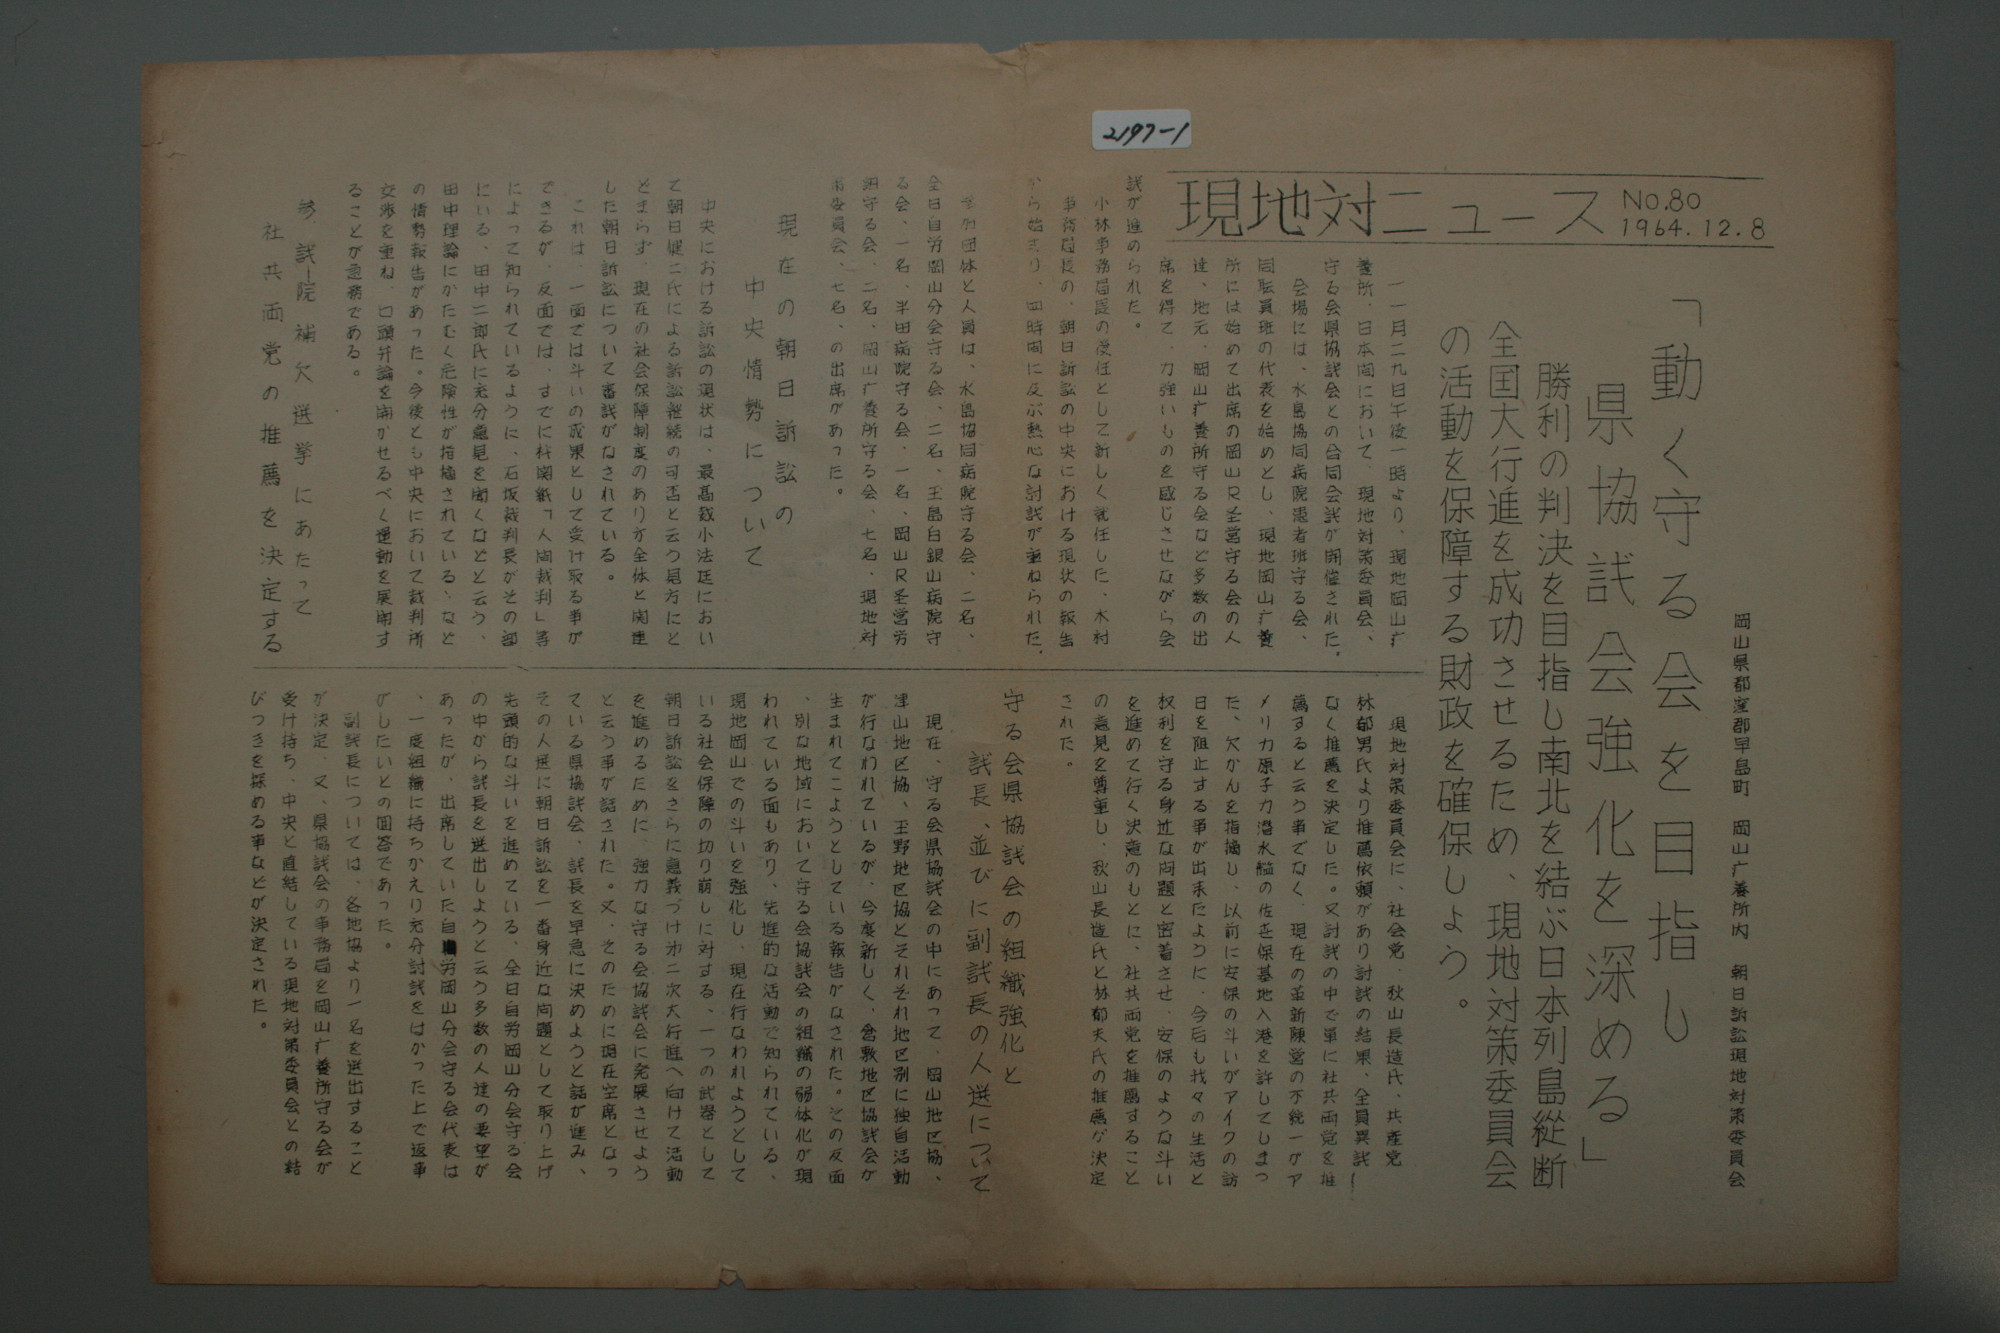 2197-1
現地対ニュース
No.80
1964.12.8
岡山県都窪郡早島町 岡山庁養所内 朝日訴訟現地対策委員会
「動く守る会を目指し
県協試会強化を深める」
勝利の判決を目指し南北を結ぶ日本列島縦断
全国大行進を成功させるため、現地対策委員会
の活動を保障する財政を確保しょう。
一一月二九日午後一時より、現地岡山庁
養所、日本間において、現地対策委員会、
守る会県協試会との合同会試が開催された。
会場には、水島協同病院患者班守る会、
同職員班の代表を始めとし、現地岡山庁養
所には始めて出席の岡山R圣営守る会の人
達、地元、岡山庁養所守る会など多数の出
席を得て、力強いものを感じさせながら会
試が進められた。
小林事務局長の後任として新しく就任した、木村
事務局長の、朝日訴訟の中央における現状の報告
から始まり、四時間に及ぶ熱心な討試が重ねられた。
参加団体と人員は、水島協同病院守る会、二名、
全日自労岡山分会守る会、二名、玉島白銀山病院守
る会、一名、半田病院守る会、一名、岡山R圣営労
組守る会、二名、岡山庁養所守る会、七名、現地対
策委員会、七名、の出席があった。
現在の朝日訴訟の
中央情勢について
中央における訴訟の現状は、最高裁小法廷におい
て朝日健二氏による訴訟継続の可否と云う見方にと
どまらず、現在の社会保障制度のあり方全体と関連
した朝日訴訟について審試がなされている。
これは、一面では斗いの成果として受け取る事が
できるが、反面では、すでに杁関紙「人間裁判」等
によって知られているように、石坂裁判長がその部
にいる、田中二郎氏に充分意見を聞くなどと云う、
田中理論にかたむく危険性が指摘されている、など
の情勢報告があった。今後とも中央において裁判所
交渉を重ね、口頭弁論を開かせるべく運動を展開す
ることが急務である。
参試院補欠選挙にあたって
社共両党の推薦を決定する
現地対策委員会に、社会党、秋山長造氏、共産党
林郁男氏より推薦依頼があり討試の結果、全員異試
なく推薦を決定した。又討試の中で単に社共両党を推
薦すると云う事でなく、現在の革新陳営の不統一がア
メリカ原子力潜水艦の佐世保基地入港を許してしまっ
た、欠かんを指摘し、以前に安保の斗いがアイクの訪
日を阻止する事が出来たように、今后も我々の生活と
权利を守る身近な问題と密着させ、安保のような斗い
を進めて行く決意のもとに、社共両党を推薦すること
の意見を尊重し、秋山長造氏と林郁夫氏の推薦が決定
された。
守る会県協試会の組織強化と
試長、並びに副試長の人選について
現在、守る会県協試会の中にあって、岡山地区協、
津山地区協、玉野地区協とそれぞれ地区別に独自活動
が行なわれているが、今度新しく、倉敷地区協試会が
生まれてこようとしている報告がなされた。その反面
、別な地域において守る会協試会の組織の弱体化が現
われている面もあり、先進的な活動で知られている、
現地岡山での斗いを強化し、現在行なわれようとして
いる社会保障の切り崩しに対する、一つの武器として
朝日訴訟をさらに意義づけ㐧二次大行進へ向けて活動
を進めるために、強力な守る会協試会に発展させよう
と云う事が話された。又、そのために現在空席となっ
ている県協試会、試長を早急に決めようと話が進み、
その人選に朝日訴訟を一番身近な问題として取り上げ
先頭的な斗いを進めている、全日自労岡山分会守る会
の中から試長を選出しようと云う多数の人達の要望が
あったが、出席していた自労岡山分会守る会代表は
、一度組織に持ちかえり充分討試をはかった上で返事
がしたいとの回答であった。
副試長については、各地協より一名を選出すること
が決定、又、県協試会の事務局を岡山庁養所守る会が
受け持ち、中央と直結している現地対策委員会との結
びつきを深める事などが決定された。